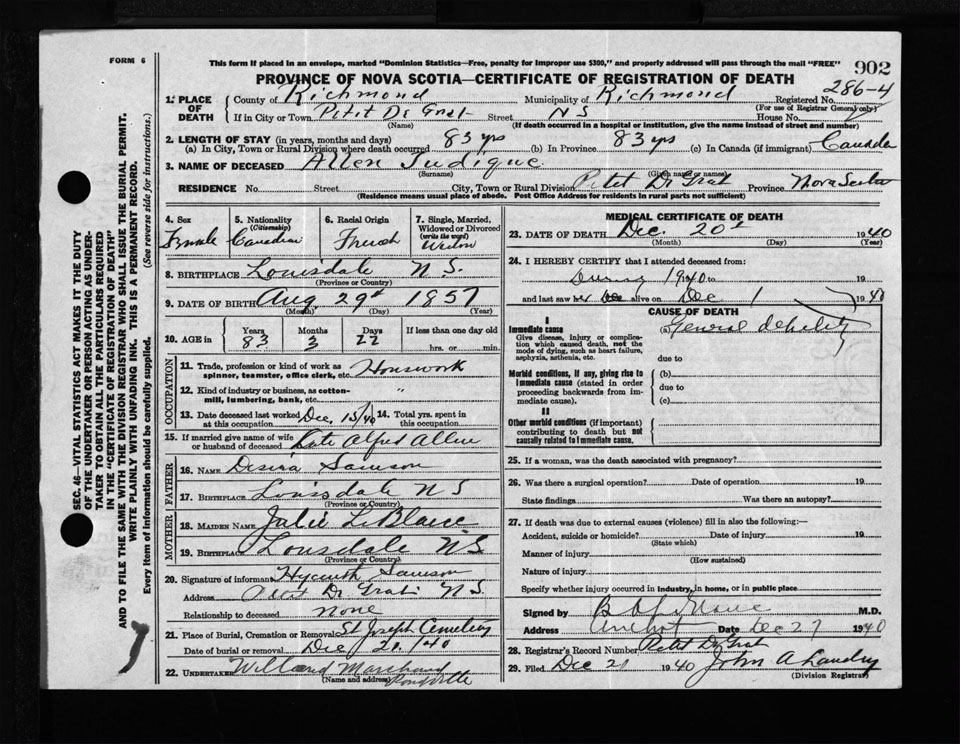 FORM 6
This form if placed in an envelope, marked "Dominion Statistics—Free, penalty for improper use $300," and properly addressed will pass through the mail "FREE"
902
PROVINCE OF NOVA SCOTIA—CERTIFICATE OF REGISTRATION OF DEATH
286-4
1. PLACE OF DEATH
County of Richmond Municipality of Richmond Registered No.
(For use of Registrar General only)
If in City or Town Petit De Grat Street N S House No.
(Name) (If death occurred in a hospital or institution, give the name instead of street and number)
2. LENGTH OF STAY (in years, months and days)
(a) In City, Town or Rural Division where death occurred 83 yrs (b) In Province 83 yrs (c) In Canada (if immigrant) Canada
3. NAME OF DECEASED Allen Judique
(Surname) (Given name or names)
RESIDENCE No. Street City, Town or Rural Division Petit De Grat Province Nova Scotia
(Residence means usual place of abode. Post Office Address for residents in rural parts not sufficient)
4. Sex Female
5. Nationality (Citizenship) Canadian
6. Racial Origin French
7. Single, Married, Widowed or Divorced (write the word) Widow
8. BIRTHPLACE Louisdale N S.
(Province or Country)
9. DATE OF BIRTH Aug 29th 1857
(Month) (Day) (Year)
10. AGE in Years 83 Months 3 Days 22 If less than one day old hrs. or min.
OCCUPATION
11. Trade, profession or kind of work as spinner, teamster, office clerk, etc. Housework
12. Kind of industry or business, as cotton-mill, lumbering, bank, etc. "
13. Date deceased last worked at this occupation Dec. 15/40 14. Total yrs. spent in this occupation
15. If married give name of wife or husband of deceased Late Alfred Allen
FATHER
16. NAME Desira Samson
17. BIRTHPLACE Louisdale N S
(Province or Country)
MOTHER
18. MAIDEN NAME Julie LeBlanc
19. BIRTHPLACE Louisdale N S
(Province or Country)
20. Signature of informant Hycinth Samson
Address Petit De Grat N S.
Relationship to deceased none
21. Place of Burial, Cremation or Removal St Joseph Cemetery
Date of burial or removal Dec 21/40
22. UNDERTAKER Willand Marchand
(Name and address)
MEDICAL CERTIFICATE OF DEATH
23. DATE OF DEATH Dec. 20th 1940
(Month) (Day) (Year)
24. I HEREBY CERTIFY that I attended deceased from:
During 1940 to 19
and last saw her alive on Dec 1 1940
CAUSE OF DEATH
I
Immediate cause (a) General debility
Give disease, injury or complication which caused death, not the mode of dying, such as heart failure, asphyxia, asthenia, etc.
due to
Morbid conditions, if any, giving rise to immediate cause (stated in order proceeding backwards from immediate cause).
(b)
due to
(c)
II
Other morbid conditions (if important) contributing to death but not causally related to immediate cause.
25. If a woman, was the death associated with pregnancy?
26. Was there a surgical operation? Date of operation 19
State findings Was there an autopsy?
27. If death was due to external causes (violence) fill in also the following:—
Accident, suicide or homicide? Date of injury 19
(State which)
Manner of injury
(How sustained)
Nature of injury
Specify whether injury occurred in industry, in home, or in public place
Signed by M.D.
Address Arichat Date Dec 27 1940
28. Registrar's Record Number Petit De Grat
29. Filed Dec 21 1940 John A Landry
(Division Registrar)
SEC. 46—VITAL STATISTICS ACT MAKES IT THE DUTY
OF THE UNDERTAKER OR PERSON ACTING AS UNDER-
TAKER TO OBTAIN ALL THE PARTICULARS REQUIRED
IN THE "CERTIFICATE OF REGISTRATION OF DEATH"
AND TO FILE THE SAME WITH THE DIVISION REGISTRAR WHO SHALL ISSUE THE BURIAL PERMIT.
WRITE PLAINLY WITH UNFADING INK. THIS IS A PERMANENT RECORD.
Every item of information should be carefully supplied. (See reverse side for instructions.)